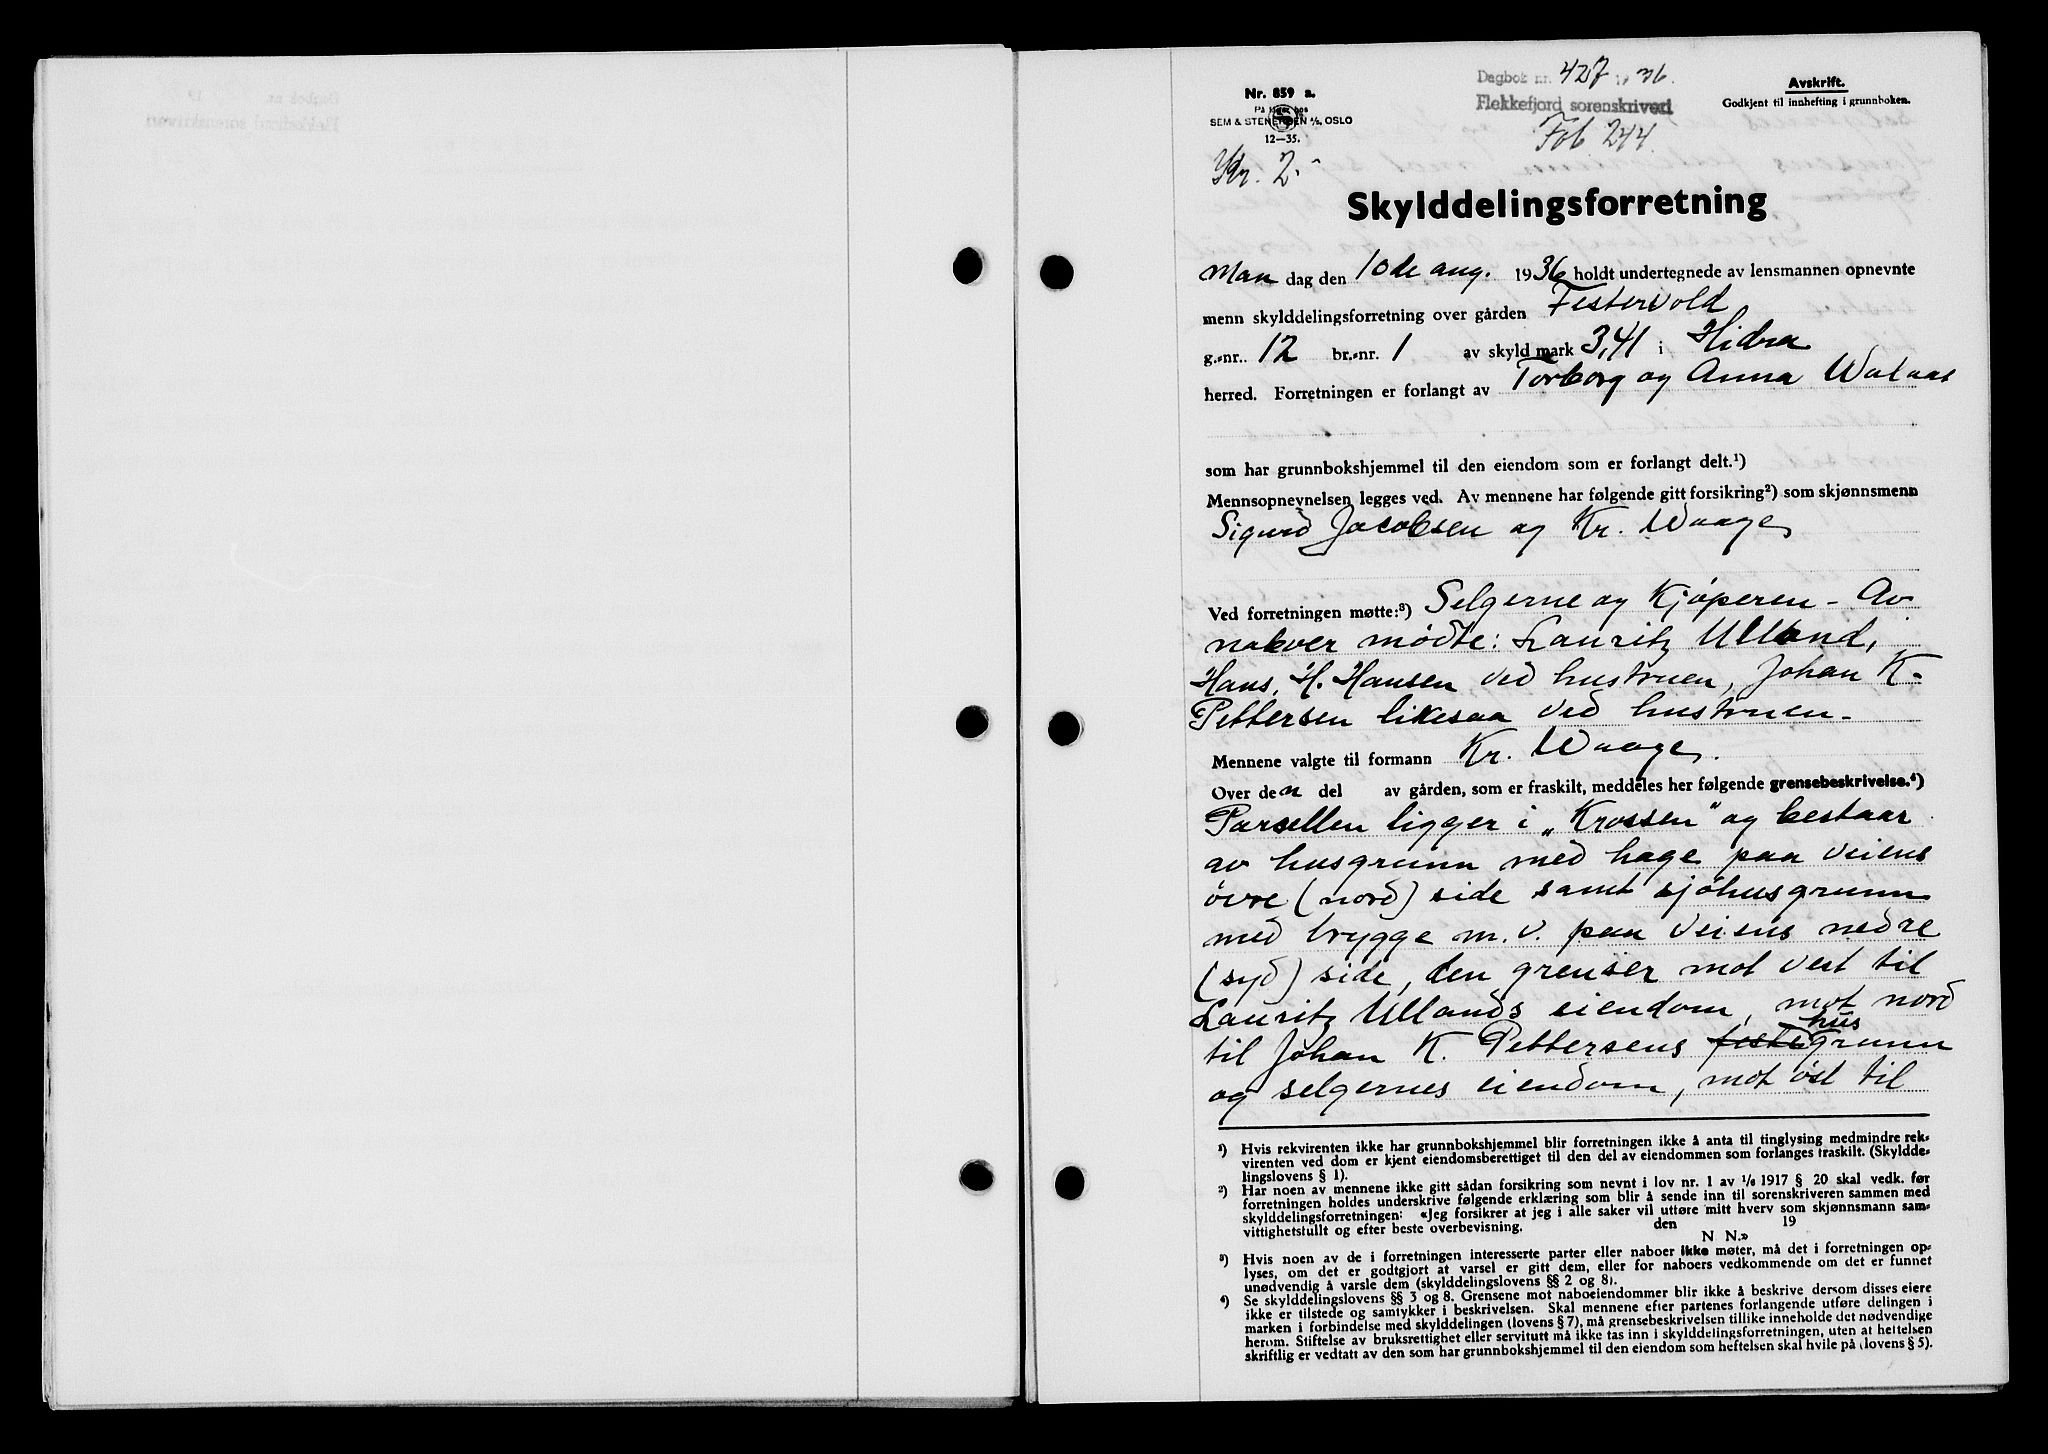 Nr. 859 a.
På lager hos
SEM & STENERSEN A/S, OSLO
12—35.
Dagbok nr. 427 1936.
Flekkefjord sorenskriveri
Fol 244.
Avskrift.
Godkjent til innhefting i grunnboken.
Kr. 2.-
Skylddelingsforretning
Man dag den 10de aug. 1936 holdt undertegnede av lensmannen opnevnte
menn skylddelingsforretning over gården Festervold
g.-nr. 12 br.-nr. 1 av skyld mark 3,41 i Hidra
herred. Forretningen er forlangt av Torborg og Anna Walaas
som har grunnbokshjemmel til den eiendom som er forlangt delt.¹)
Mennsopnevnelsen legges ved. Av mennene har følgende gitt forsikring²) som skjønnsmenn
Sigurd Jacobsen og Kr. Waage
Ved forretningen møtte:³) Selgerne og Kjøperen - Av
naboer mødte: Lauritz Ulland,
Hans. H. Hansen ved hustruen, Johan K.
Pettersen likesaa ved hustruen-
Mennene valgte til formann Kr. Waage.
Over den del av gården, som er fraskilt, meddeles her følgende grensebeskrivelse.⁴)
Parsellen ligger i „Krossen" og bestaar
av husgrunn med hage paa veiens
øvre (nord) side samt sjøhusgrunn
med brygge m.v. paa veiens nedre
(syd) side, den grenser mot vest til
Lauritz Ullands eiendom, mot nord
til Johan K. Pettersens feste husgrunn
og selgernes eiendom, mot øst til
¹) Hvis rekvirenten ikke har grunnbokshjemmel blir forretningen ikke å anta til tinglysing medmindre rek-
virenten ved dom er kjent eiendomsberettiget til den del av eiendommen som forlanges fraskilt. (Skyldde-
lingslovens § 1).
²) Har noen av mennene ikke gitt sådan forsikring som nevnt i lov nr. 1 av 1/6 1917 § 20 skal vedk. før
forretningen holdes underskrive følgende erklæring som blir å sende inn til sorenskriveren sammen med
skylddelingsforretningen: «Jeg forsikrer at jeg i alle saker vil utføre mitt hverv som skjønnsmann sam-
vittighetsfullt og efter beste overbevisning. den 19
N N.»
³) Hvis noen av de i forretningen interesserte parter eller naboer ikke møter, må det i forretningen op-
lyses, om det er godtgjort at varsel er gitt dem, eller for naboers vedkommende om det er funnet
unødvendig å varsle dem (skylddelingslovens §§ 2 og 8).
⁴) Se skylddelingslovens §§ 3 og 8. Grensene mot naboeiendommer blir ikke å beskrive dersom disses eiere
ikke er tilstede og samtykker i beskrivelsen. Skal mennene efter partenes forlangende utføre delingen i
marken i forbindelse med skylddelingen (lovens § 7), må grensebeskrivelsen tillike inneholde det nødvendige
herom. Stiftelse av bruksrettighet eller servitutt må ikke tas inn i skylddelingsforretningen, uten at heftelsen
skriftlig er vedtatt av den som har grunnbokshjemmel til den eiendom som heftelsen skal hvile på (lovens § 5).